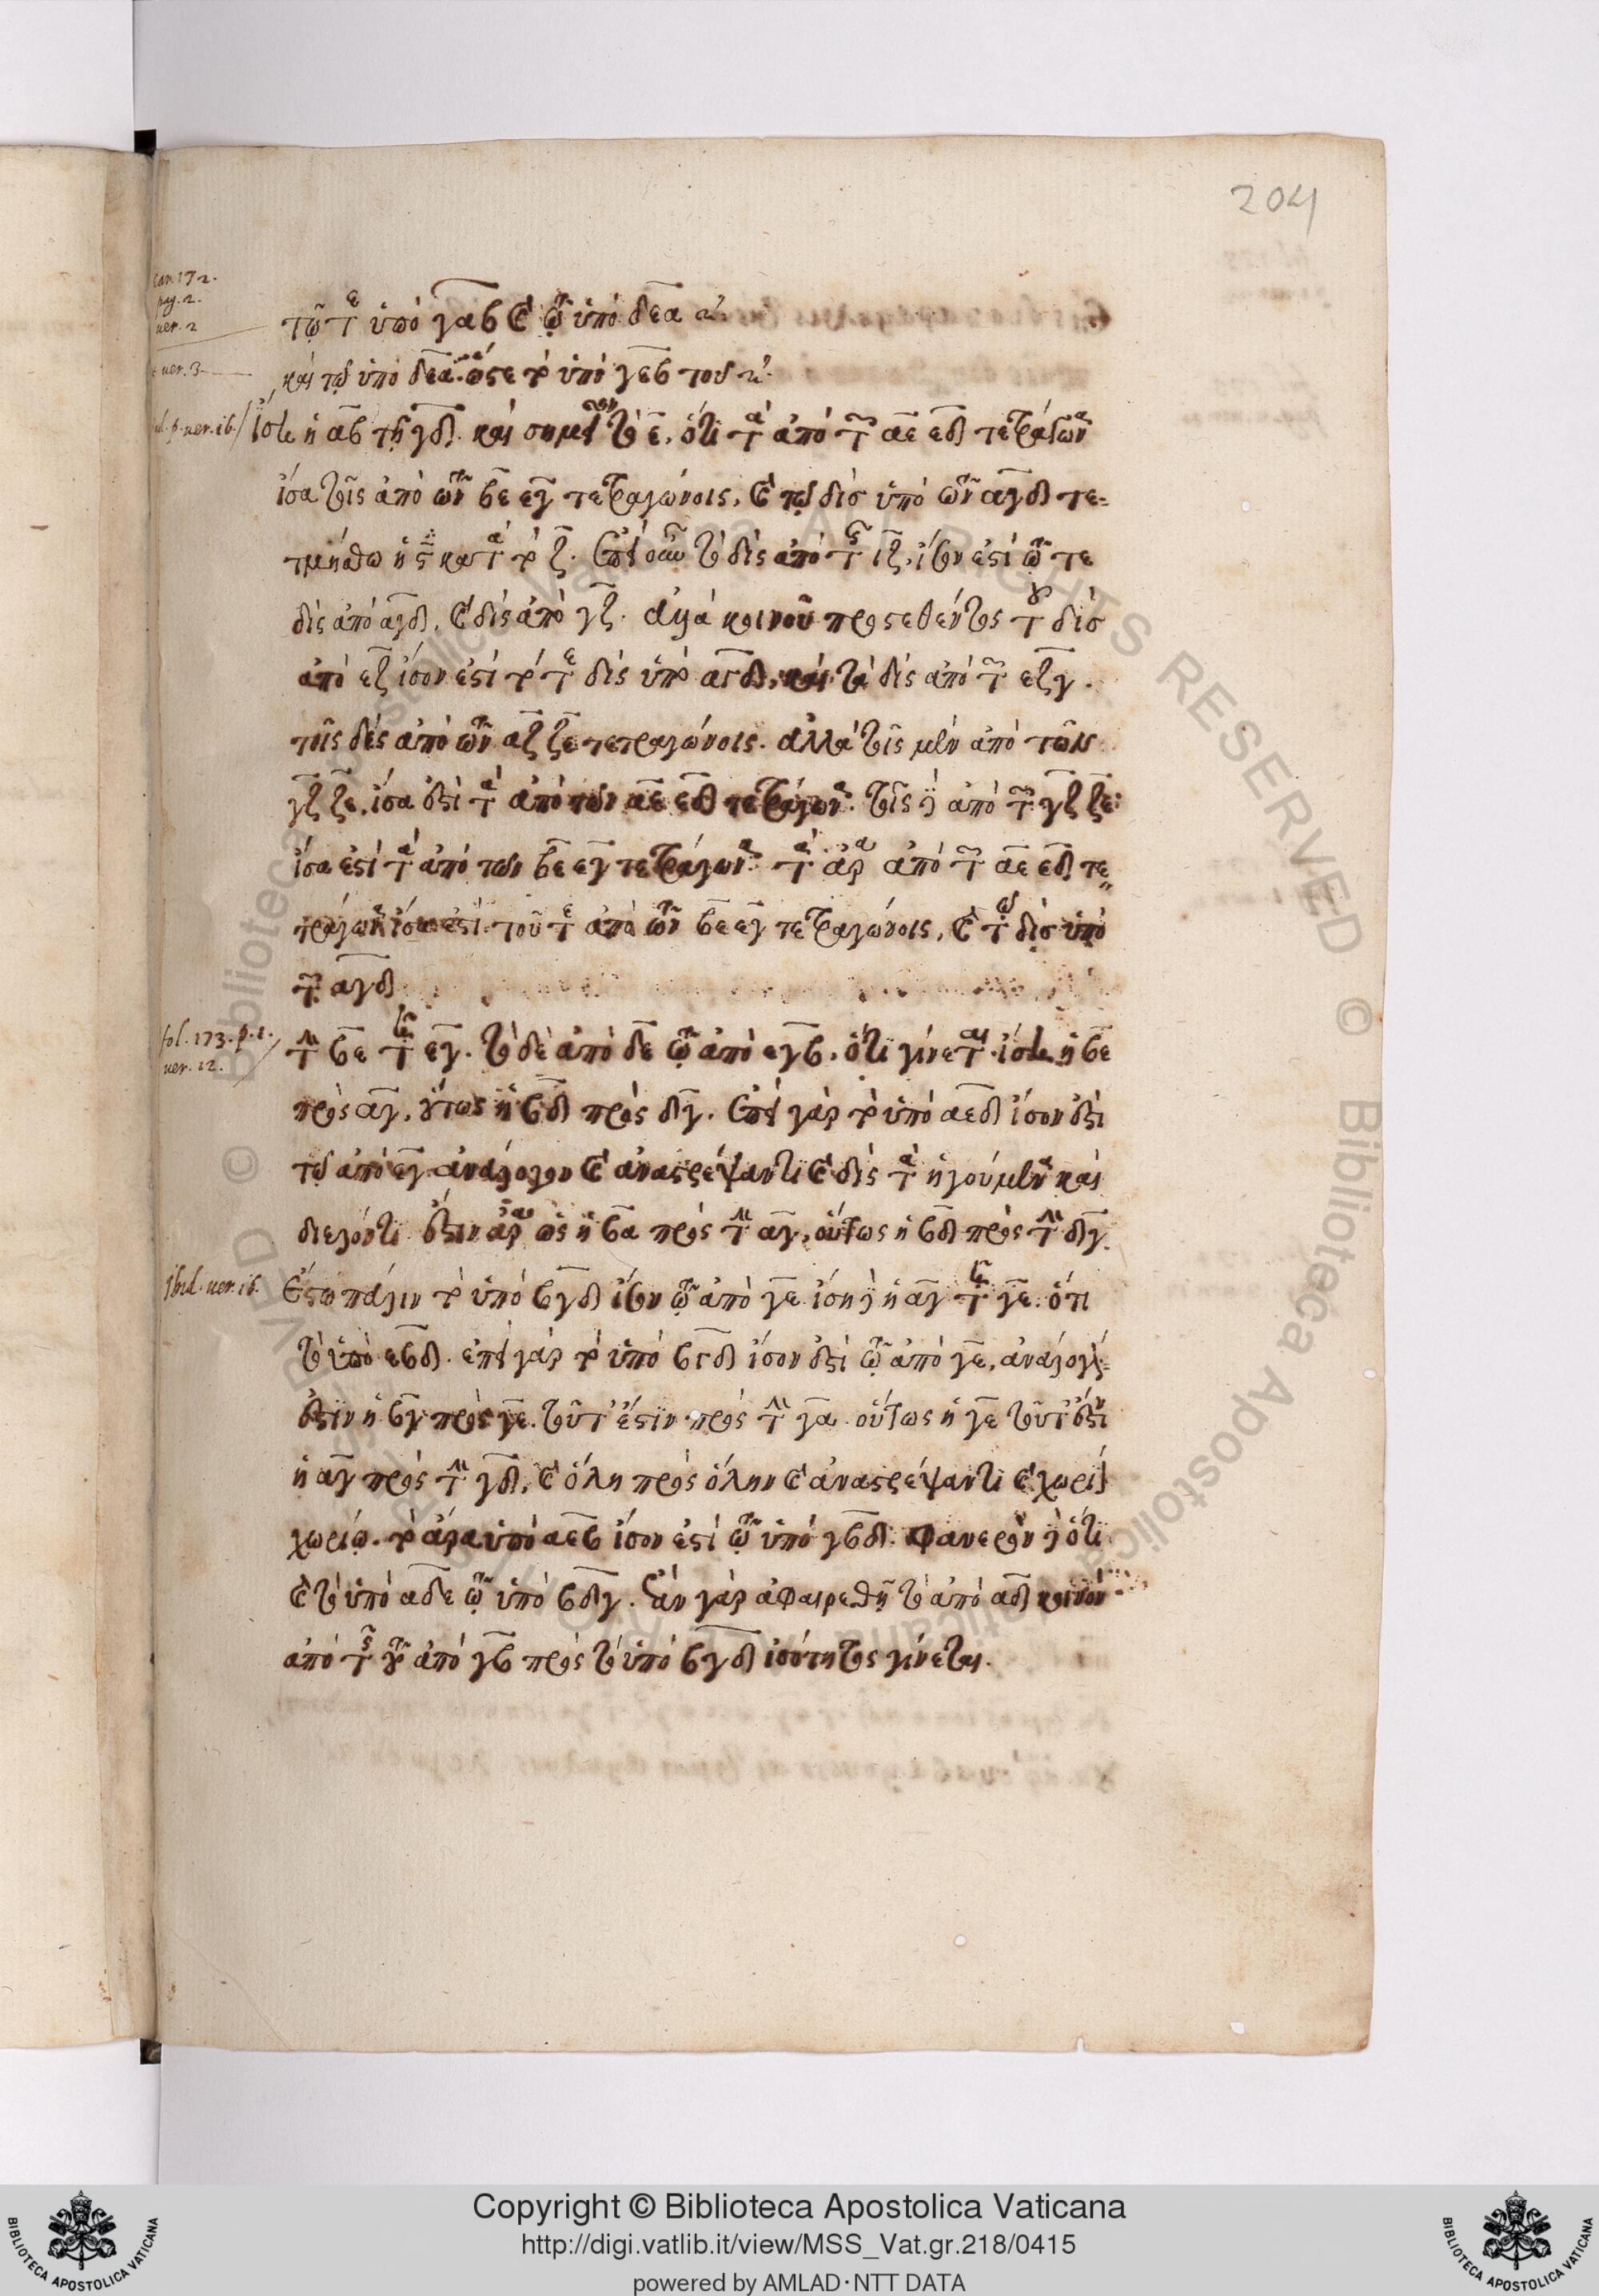 204
pag. 2.
ver. 2
τῷ τε ὑπὸ γαβ καὶ τῷ ὑπὸ δεα
ver. 3
καὶ τῷ ὑπὸ δεα ὥστε τὸ ὑπὸ γεβ τοῦ
ver. 16. ἴση ἡ αβ τῇ γδ. καὶ σημεῖον τὸ ε, ὅτι τὰ ἀπὸ τῶν αε εδ τετράγωνα
ἴσα τοῖς ἀπὸ τῶν βε εγ τετραγώνοις, καὶ τῷ δὶς ὑπὸ τῶν αγδ τε-
τμήσθω ἡ κατὰ τὸ ζ. ἐπεὶ οὖν τὸ δὶς ἀπὸ τῆς ἴσον ἐστὶ τῷ τε
δὶς ἀπὸ αγδ, καὶ δὶς ἀπὸ γζ. ἀλλὰ κοινοῦ προςεθέντος τοῦ δὶς
ἀπὸ εζ ἴσον ἐστὶ τό τε δὶς ὑπὸ αγδ, καὶ τὰ δὶς ἀπὸ τῶν εζγ.
τοῖς δὶς ἀπὸ τῶν αζ ζε τετραγώνοις. ἀλλὰ τοῖς μὲν ἀπὸ τῶν
γζ ζε, ἴσα ἐστὶ τὰ ἀπὸ τῶν αε εδ τετράγωνα. τοῖς δὲ ἀπὸ τῶν γζ ζε:
ἴσα ἐστὶ τὰ ἀπὸ τῶν βε εγ τετράγωνα τὰ ἄρα ἀπὸ τῶν αε εδ τε
τράγωνα ἴσα ἐστὶ τοῖς τε ἀπὸ τῶν βε εγ τετραγώνοις, καὶ τῷ δὶς ὑπὸ
τῶν αγδ
fol. 173. p. 1. τὴν βε τῆς εγ. τὸ δὲ ἀπὸ δε τῷ ἀπὸ εγβ, ὅτι γίνεται ἴση ἡ βε
ver. 12.
πρὸς αγ, οὕτως ἡ βδ πρὸς δγ. ἐπεὶ γὰρ τὸ ὑπὸ αεδ ἴσον ἐστὶ
τῷ ἀπὸ εγ ἀνάλογον καὶ ἀναστρέψαντι καὶ δὶς τὰ ἡγούμενα καὶ
διελόντι ἔστιν ἄρα ὡς ἡ βα πρὸς τὴν αγ, οὕτως ἡ βδ πρὸς τὴν δγ.
ibid. ver. 16. ἔστω πάλιν τὸ ὑπὸ βγδ ἴσον τῷ ἀπὸ γε ἴση δὲ ἡ αγ τῇ γε. ὅτι
τὸ ὑπὸ εβδ. ἐπεὶ γὰρ τὸ ὑπὸ βγδ ἴσον ἐστὶ τῷ ἀπὸ γε, ἀνάλογόν
ἐστιν ἡ βγ πρὸς γε. τοῦτ' ἔστιν πρὸς τὴν γα οὕτως ἡ γε τοῦτ' ἐστιν
ἡ αγ πρὸς τὴν γδ, καὶ ὅλη πρὸς ὅλην καὶ ἀναστρέψαντι καὶ χωρίον
χωρίῳ. τὸ ἄρα ὑπὸ αεβ ἴσον ἐστὶ τῷ ὑπὸ γβδ. φανερὸν δὲ ὅτι
καὶ τὸ ὑπὸ αδε τῷ ὑπὸ βδγ. ἐὰν γὰρ ἀφαιρεθῇ τὸ ἀπὸ αδ κοινὸν
ἀπὸ τῆς τοῦ ἀπὸ γβ πρὸς τὸ ὑπὸ βγδ ἰσότητος γίνεται.
Copyright © Biblioteca Apostolica Vaticana
http://digi.vatlib.it/view/MSS_Vat.gr.218/0415
powered by AMLAD·NTT DATA